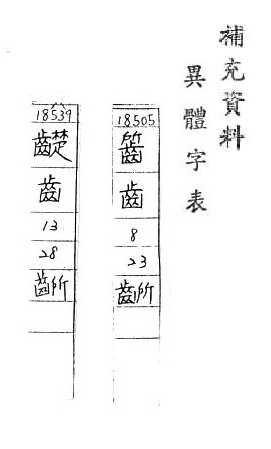 補充資料
異體字表
18505
齒
8
23
18539
齼
齒
13
28